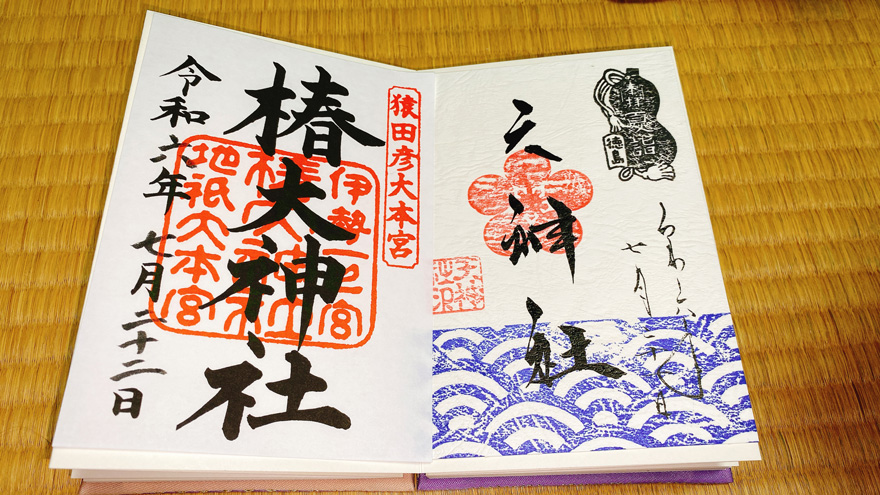 猿田彦大本宮
椿大神社
伊勢一之宮
椿大神社
地祇大本宮
令和六年 七月二十二日
夏詣
徳島
天神社
七月